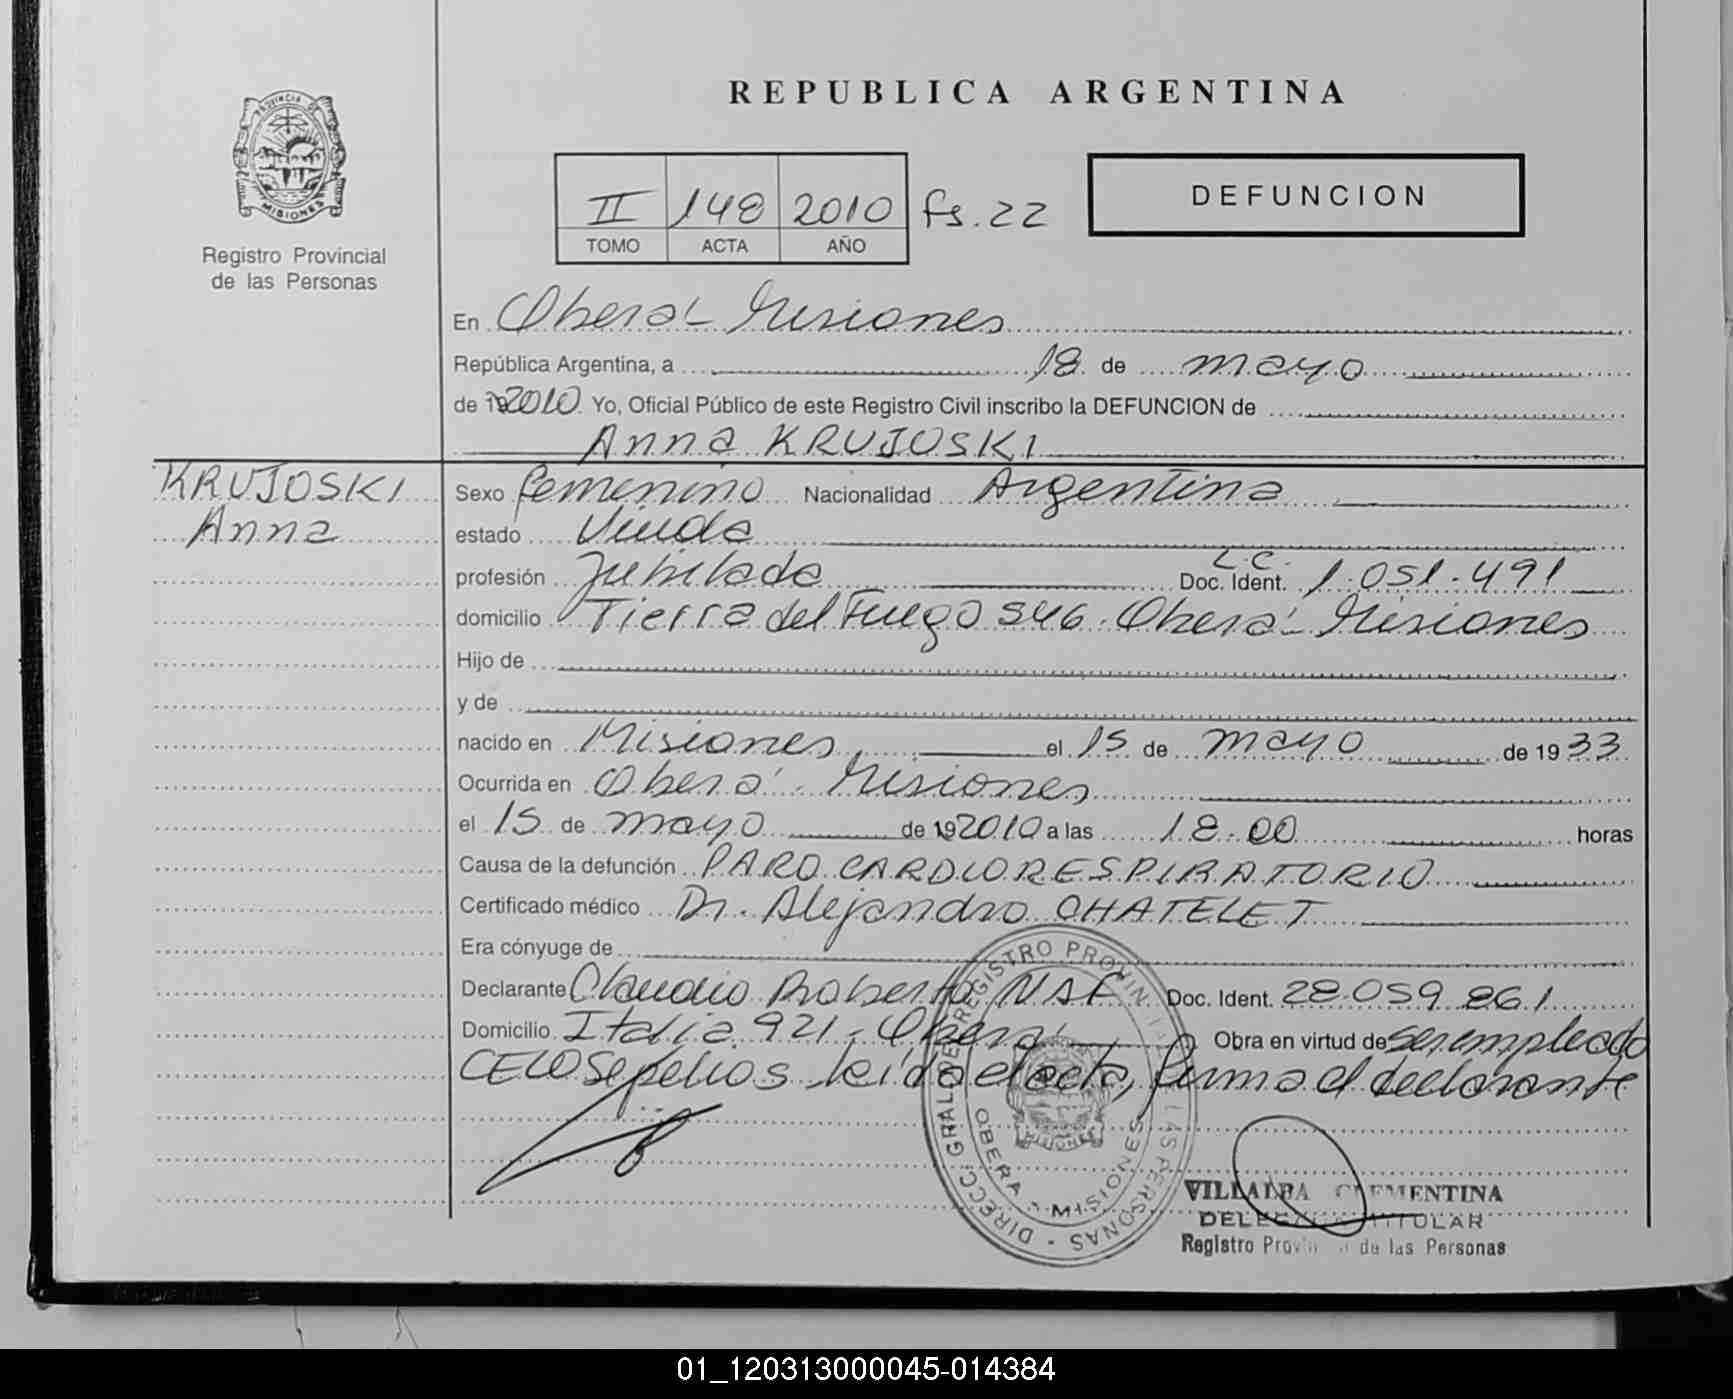 REPUBLICA ARGENTINA
PROVINCIA DE
MISIONES
Registro Provincial
de las Personas
II 148 2010 fs. 22
TOMO ACTA AÑO
DEFUNCION
En Oberá - Misiones
República Argentina, a 18 de mayo
de 19 2010 Yo, Oficial Público de este Registro Civil inscribo la DEFUNCION de
Anna KRUJOSKI
KRUJOSKI
Anna
Sexo femenino Nacionalidad Argentina
estado Viuda
profesión Jubilada L.C. Doc. Ident. 1.051.491
domicilio Tierra del Fuego 346. Oberá - Misiones
Hijo de
y de
nacido en Misiones el 15 de mayo de 1933
Ocurrida en Oberá - Misiones
el 15 de mayo de 19 2010 a las 18.00 horas
Causa de la defunción PARO CARDIORESPIRATORIO
Certificado médico Dr. Alejandro CHATELET
Era cónyuge de
Declarante Claudio Roberto Doc. Ident. 28.059.861
Domicilio Italia 921 - Oberá Obra en virtud de ser empleado
CELO Sepelios leída el acta, firma el declarante
DIRECC. GRAL. DEL REGISTRO PROVINCIAL DE LAS PERSONAS
OBERA - MISIONES
MISIONES
VILLALBA CLEMENTINA
DELEGADA TITULAR
Registro Provincial de las Personas
01_120313000045-014384